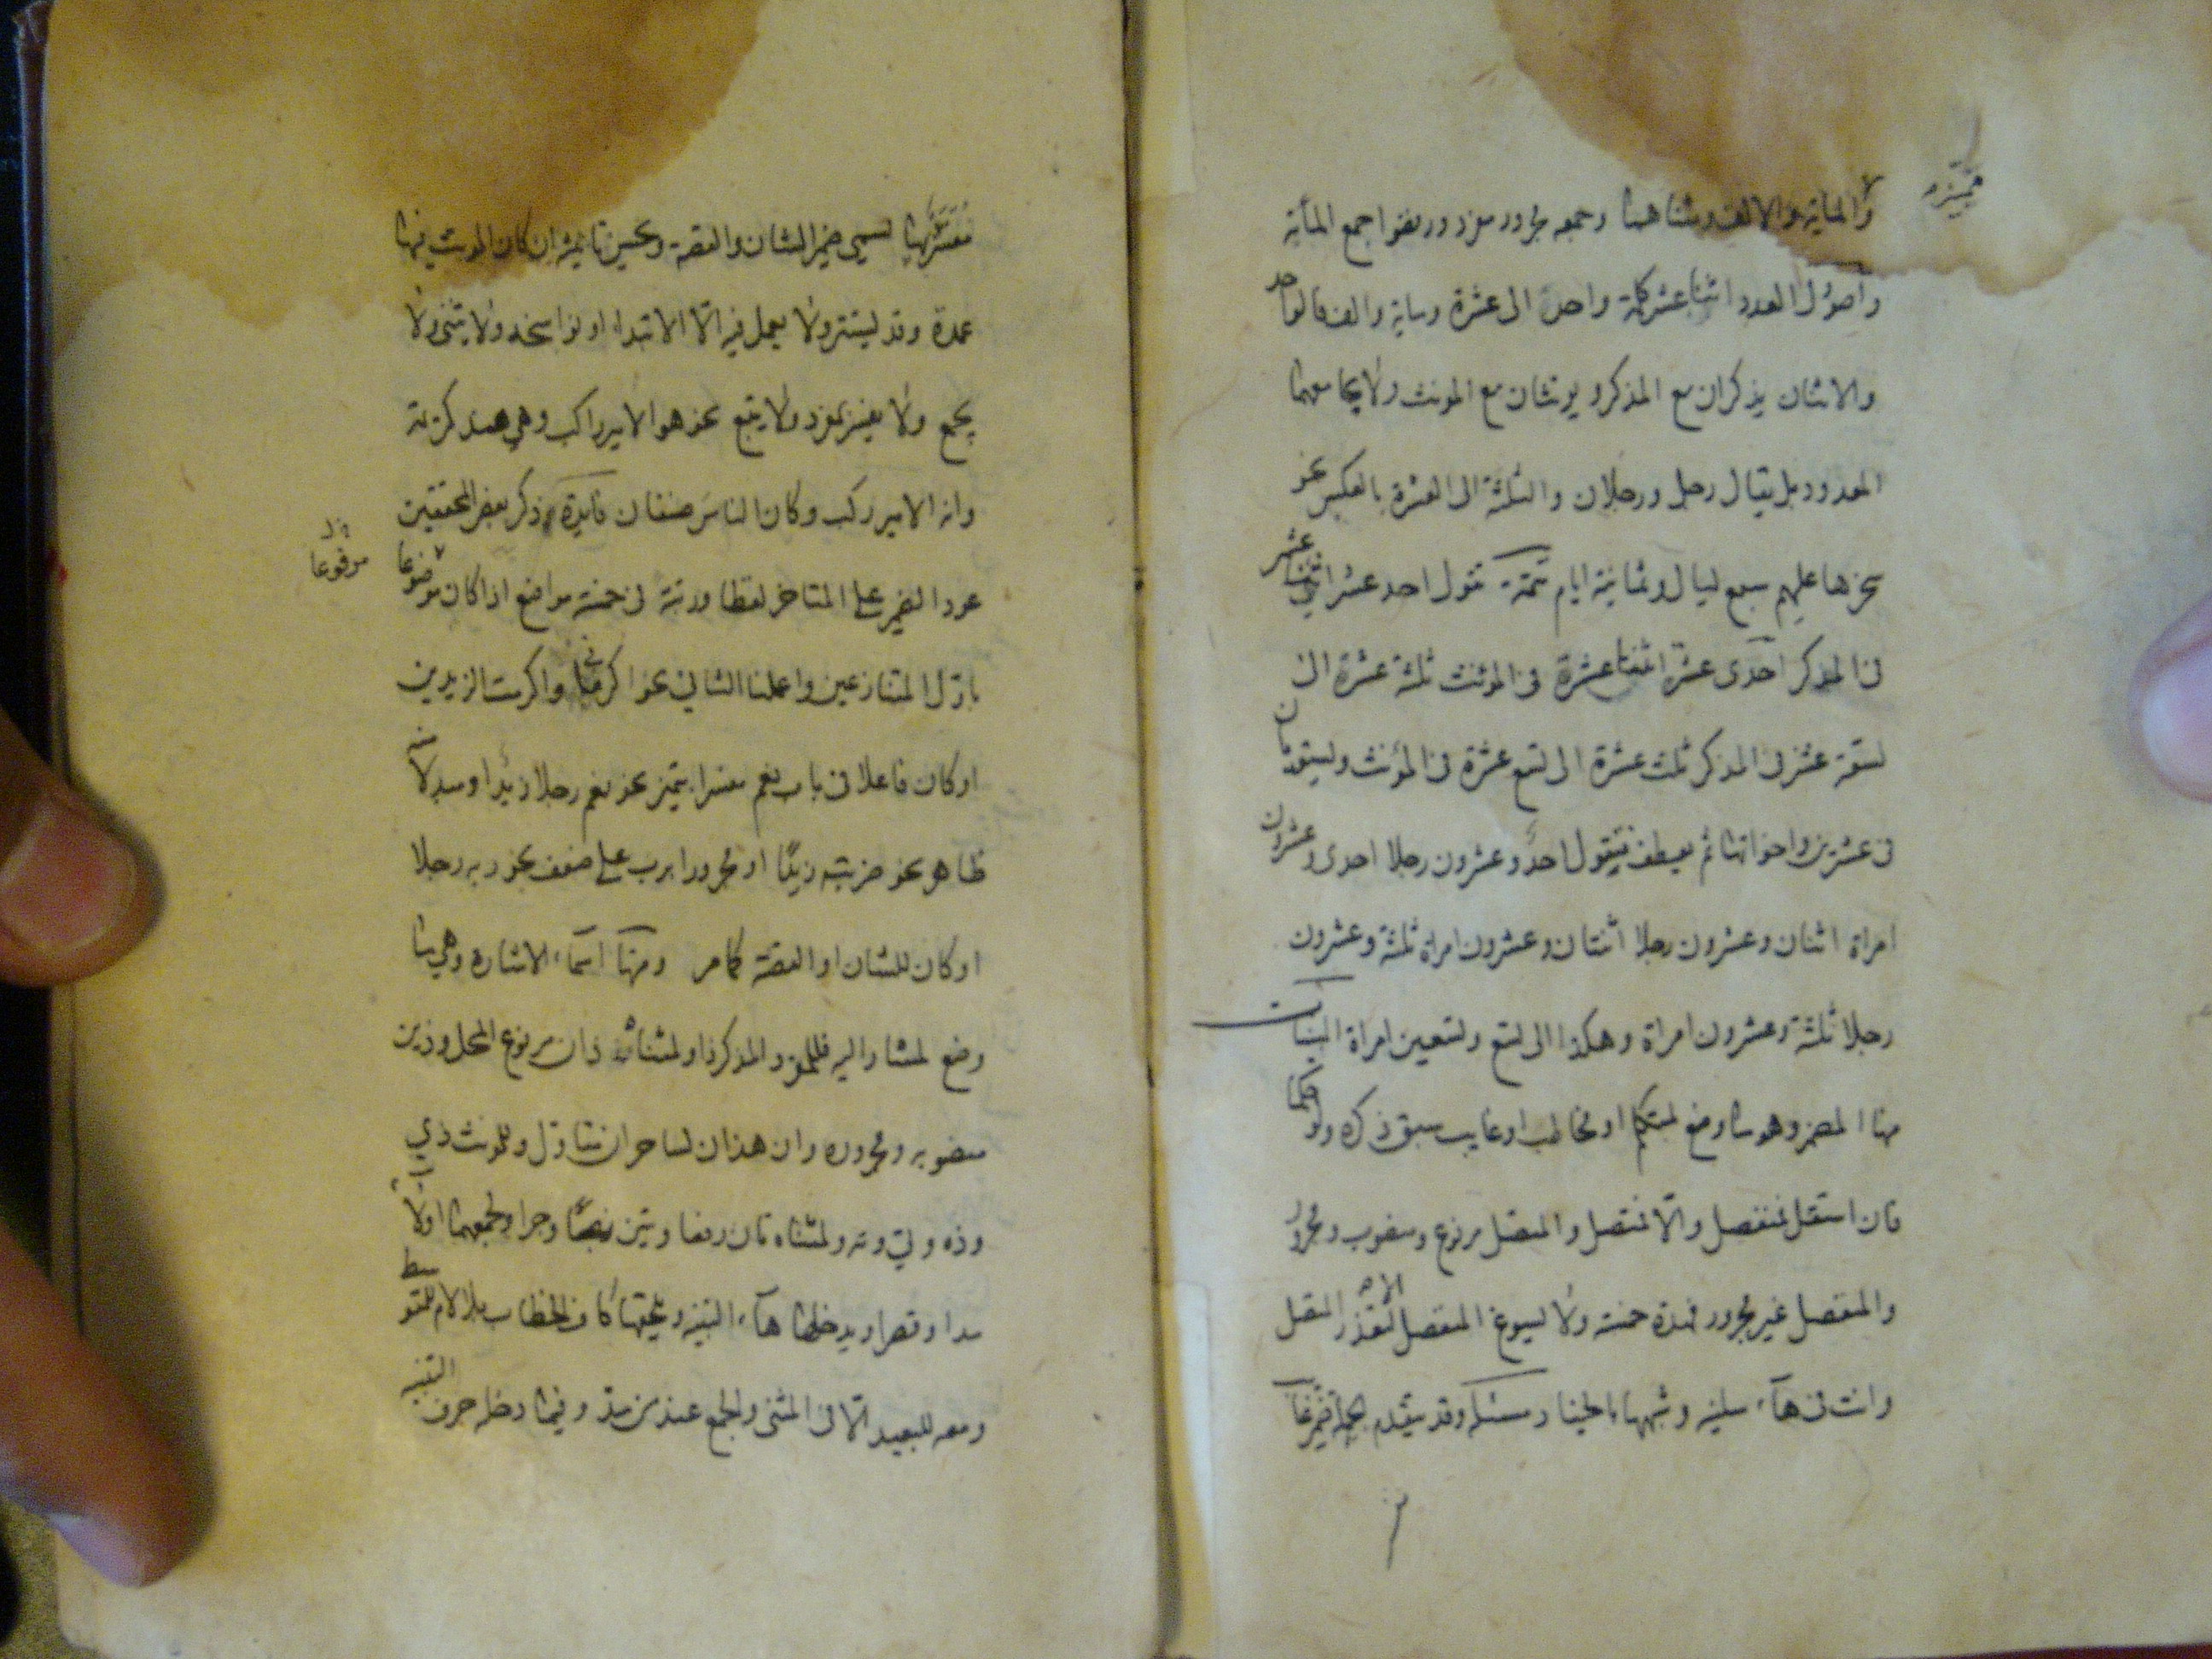 مميّزه
والمائة والالف ومثناهما وجمعه مجرور مفرد ورفضوا جمع المأية
واصول العدد اثنا عشر كلمة واحد الى عشرة ومایة والف فالواحد
والاثنان يذكران مع المذكر ويونثان مع المونث ولا يجامعهما
المعدود بل يقال رجل ورجلان والثلثة الى العشرة بالعكس نحو
سخرها عليهم سبع ليال وثمانية ايام تتمة تقول احد عشر اثنا عشر
فى المذكر احدى عشرة اثنتا عشرة فى المؤنث ثلثة عشرة الى
تسعة عشر فى المذكر ثلث عشرة الى تسع عشرة فى المؤنث ويستويان
فى عشرين واخواتها ثم يعطف فيقول احد وعشرون رجلا احدى وعشرون
امراة اثنان وعشرون رجلا اثنتان وعشرون امراة ثلثة وعشرون
رجلا ثلثة وعشرون امراة وهكذا الى تسع وتسعين امراة المبنيات
منها المضمر وهو ما وضع لمتكلم او مخاطب او غايب سبق ذكره ولو حكما
فان استقل فمنفصل والا فمتصل والمتصل مرفوع ومنصوب ومجرور
والمنفصل غير مجرور فهذه خمسة ولا يسوغ المنفصل الا لتعذر المتصل
وانت فى هاء سلنيه وشبهها بالخيار مسئلة وقد يتقدم الجملة ضمير غايب
مفسّر بها يسمى ضمير الشان والقصة ويحسن تانيثه ان كان المونث فيها
عمدة وقد يستتر ولا يعمل فيه الّا الابتداء او نواسخه ولا يثنى ولا
يجمع ولا يفسر بمفرد ولا يتبع نحو هو الامير راكب وهى هند كريمة
وانه الامير ركب وكان الناس صنفان فايدة ذكر بعض المحققين
عود الضمير على المتاخر لفظا ورتبة فى خمسة مواضع اذا كان مرفوعا
مرفوعا
باوّل المتنازعين واعملنا الثانى نحو اكرمانى واكرمت الزيدين
او كان فاعلا فى باب نعم مفسرا بتميز نحو نعم رجلا زيد او مبدلا منه
ظاهر نحو ضربته زيدًا او مجرورا برب على ضعف نحو ربه رجلا
او كان للشان او القصة كما مر ومنها اسماء الاشاره وهى ما
وضع لمشار اليه فللمفرد المذكر ذا ولمثناه ذان مرفوع المحل وذين
منصوبه ومجروره وان هذان لساحران متاوّل وللمونث ذي
وذه وتي وته ولمثناه تان رفعا وتين نصبًا وجرا ولجمعهما اولاء
مدا وقصرا ويدخلها هاء التنبيه ويلحقها كاف الخطاب بلا لام للمتوسط
ومعه للبعيد الّا فى المثنى والجمع عند من مدّ وفيما دخله حرف التنبيه